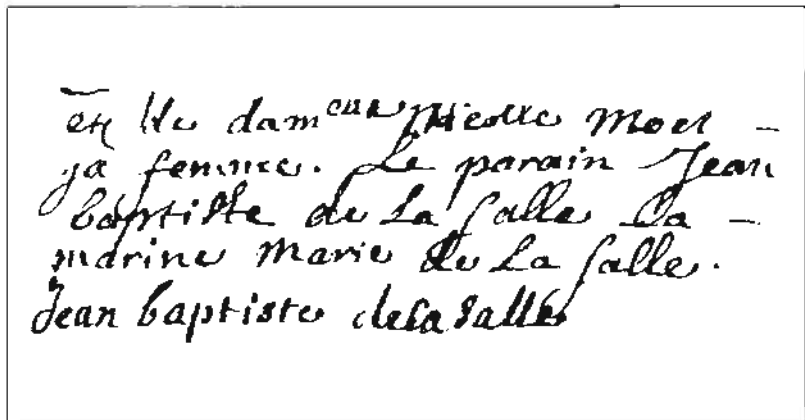 et de dam^elle Nicolle Moet -
sa femme. Le parain Jean
baptiste de La Salle la -
marine Marie de La Salle.
Jean baptiste delaSalle